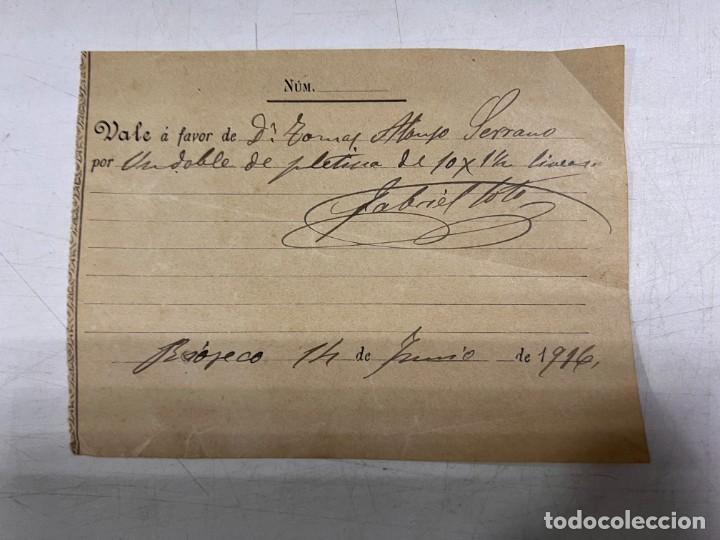 NÚM.
Vale á favor de Dn Tomas Alonso Serrano
por Un doble de pletina de 10 x 1½ lineas
Gabriel Soto
Rioseco 14 de Junio de 1916,
todocoleccion.net